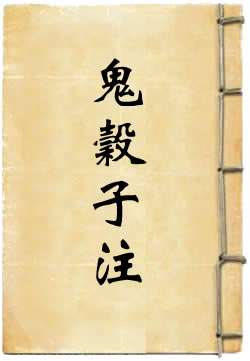 鬼穀子注